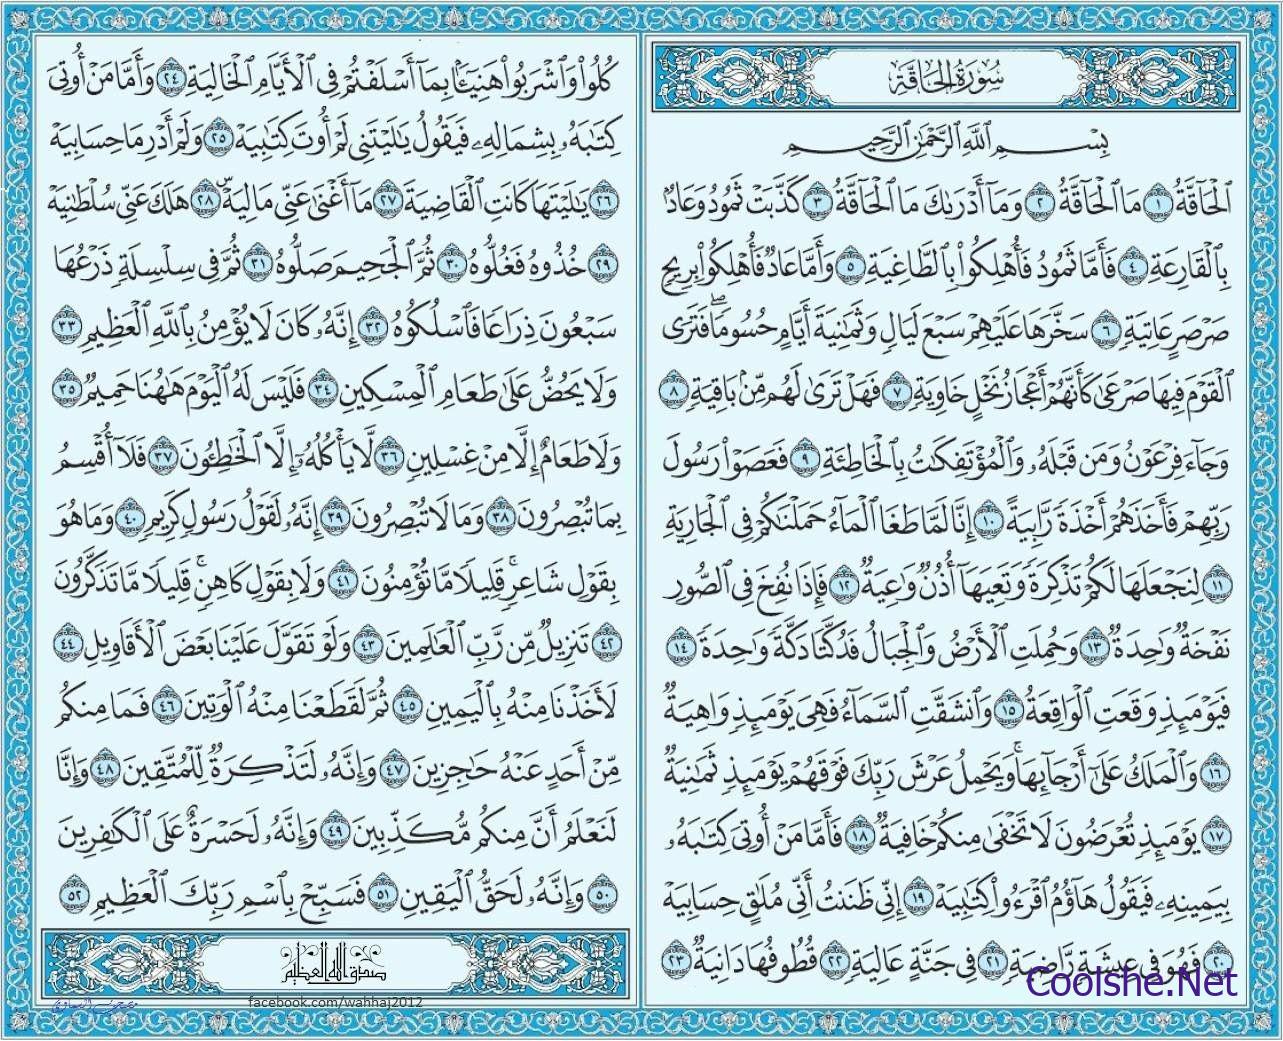 سُورَةُ الحَاقَّة
بِسْمِ ٱللَّهِ ٱلرَّحْمَٰنِ ٱلرَّحِيمِ
ٱلْحَآقَّةُ ١ مَا ٱلْحَآقَّةُ ٢ وَمَآ أَدْرَىٰكَ مَا ٱلْحَآقَّةُ ٣ كَذَّبَتْ ثَمُودُ وَعَادٌۢ
بِٱلْقَارِعَةِ ٤ فَأَمَّا ثَمُودُ فَأُهْلِكُوا۟ بِٱلطَّاغِيَةِ ٥ وَأَمَّا عَادٌ فَأُهْلِكُوا۟ بِرِيحٍ
صَرْصَرٍ عَاتِيَةٍ ٦ سَخَّرَهَا عَلَيْهِمْ سَبْعَ لَيَالٍ وَثَمَٰنِيَةَ أَيَّامٍ حُسُومًا ۖ فَتَرَى
ٱلْقَوْمَ فِيهَا صَرْعَىٰ كَأَنَّهُمْ أَعْجَازُ نَخْلٍ خَاوِيَةٍ ٧ فَهَلْ تَرَىٰ لَهُم مِّنۢ بَاقِيَةٍ ٨
وَجَآءَ فِرْعَوْنُ وَمَن قَبْلَهُۥ وَٱلْمُؤْتَفِكَٰتُ بِٱلْخَاطِئَةِ ٩ فَعَصَوْا۟ رَسُولَ
رَبِّهِمْ فَأَخَذَهُمْ أَخْذَةً رَّابِيَةً ١٠ إِنَّا لَمَّا طَغَا ٱلْمَآءُ حَمَلْنَٰكُمْ فِى ٱلْجَارِيَةِ
١١ لِنَجْعَلَهَا لَكُمْ تَذْكِرَةً وَتَعِيَهَآ أُذُنٌ وَٰعِيَةٌ ١٢ فَإِذَا نُفِخَ فِى ٱلصُّورِ
نَفْخَةٌ وَٰحِدَةٌ ١٣ وَحُمِلَتِ ٱلْأَرْضُ وَٱلْجِبَالُ فَدُكَّتَا دَكَّةً وَٰحِدَةً ١٤
فَيَوْمَئِذٍ وَقَعَتِ ٱلْوَاقِعَةُ ١٥ وَٱنشَقَّتِ ٱلسَّمَآءُ فَهِىَ يَوْمَئِذٍ وَاهِيَةٌ
١٦ وَٱلْمَلَكُ عَلَىٰٓ أَرْجَآئِهَا ۚ وَيَحْمِلُ عَرْشَ رَبِّكَ فَوْقَهُمْ يَوْمَئِذٍ ثَمَٰنِيَةٌ
١٧ يَوْمَئِذٍ تُعْرَضُونَ لَا تَخْفَىٰ مِنكُمْ خَافِيَةٌ ١٨ فَأَمَّا مَنْ أُوتِىَ كِتَٰبَهُۥ
بِيَمِينِهِۦ فَيَقُولُ هَآؤُمُ ٱقْرَءُوا۟ كِتَٰبِيَهْ ١٩ إِنِّى ظَنَنتُ أَنِّى مُلَٰقٍ حِسَابِيَهْ
٢٠ فَهُوَ فِى عِيشَةٍ رَّاضِيَةٍ ٢١ فِى جَنَّةٍ عَالِيَةٍ ٢٢ قُطُوفُهَا دَانِيَةٌ ٢٣
Coolshe.Net
كُلُوا۟ وَٱشْرَبُوا۟ هَنِيٓـًٔۢا بِمَآ أَسْلَفْتُمْ فِى ٱلْأَيَّامِ ٱلْخَالِيَةِ ٢٤ وَأَمَّا مَنْ أُوتِىَ
كِتَٰبَهُۥ بِشِمَالِهِۦ فَيَقُولُ يَٰلَيْتَنِى لَمْ أُوتَ كِتَٰبِيَهْ ٢٥ وَلَمْ أَدْرِ مَا حِسَابِيَهْ
٢٦ يَٰلَيْتَهَا كَانَتِ ٱلْقَاضِيَةَ ٢٧ مَآ أَغْنَىٰ عَنِّى مَالِيَهْ ۜ ٢٨ هَلَكَ عَنِّى سُلْطَٰنِيَهْ
٢٩ خُذُوهُ فَغُلُّوهُ ٣٠ ثُمَّ ٱلْجَحِيمَ صَلُّوهُ ٣١ ثُمَّ فِى سِلْسِلَةٍ ذَرْعُهَا
سَبْعُونَ ذِرَاعًا فَٱسْلُكُوهُ ٣٢ إِنَّهُۥ كَانَ لَا يُؤْمِنُ بِٱللَّهِ ٱلْعَظِيمِ ٣٣
وَلَا يَحُضُّ عَلَىٰ طَعَامِ ٱلْمِسْكِينِ ٣٤ فَلَيْسَ لَهُ ٱلْيَوْمَ هَٰهُنَا حَمِيمٌ ٣٥
وَلَا طَعَامٌ إِلَّا مِنْ غِسْلِينٍ ٣٦ لَّا يَأْكُلُهُۥٓ إِلَّا ٱلْخَٰطِـُٔونَ ٣٧ فَلَآ أُقْسِمُ
بِمَا تُبْصِرُونَ ٣٨ وَمَا لَا تُبْصِرُونَ ٣٩ إِنَّهُۥ لَقَوْلُ رَسُولٍ كَرِيمٍ ٤٠ وَمَا هُوَ
بِقَوْلِ شَاعِرٍ ۚ قَلِيلًا مَّا تُؤْمِنُونَ ٤١ وَلَا بِقَوْلِ كَاهِنٍ ۚ قَلِيلًا مَّا تَذَكَّرُونَ
٤٢ تَنزِيلٌ مِّن رَّبِّ ٱلْعَٰلَمِينَ ٤٣ وَلَوْ تَقَوَّلَ عَلَيْنَا بَعْضَ ٱلْأَقَاوِيلِ ٤٤
لَأَخَذْنَا مِنْهُ بِٱلْيَمِينِ ٤٥ ثُمَّ لَقَطَعْنَا مِنْهُ ٱلْوَتِينَ ٤٦ فَمَا مِنكُم
مِّنْ أَحَدٍ عَنْهُ حَٰجِزِينَ ٤٧ وَإِنَّهُۥ لَتَذْكِرَةٌ لِّلْمُتَّقِينَ ٤٨ وَإِنَّا
لَنَعْلَمُ أَنَّ مِنكُم مُّكَذِّبِينَ ٤٩ وَإِنَّهُۥ لَحَسْرَةٌ عَلَى ٱلْكَٰفِرِينَ
٥٠ وَإِنَّهُۥ لَحَقُّ ٱلْيَقِينِ ٥١ فَسَبِّحْ بِٱسْمِ رَبِّكَ ٱلْعَظِيمِ ٥٢
صدق الله العظيم
facebook.com/wahhaj2012